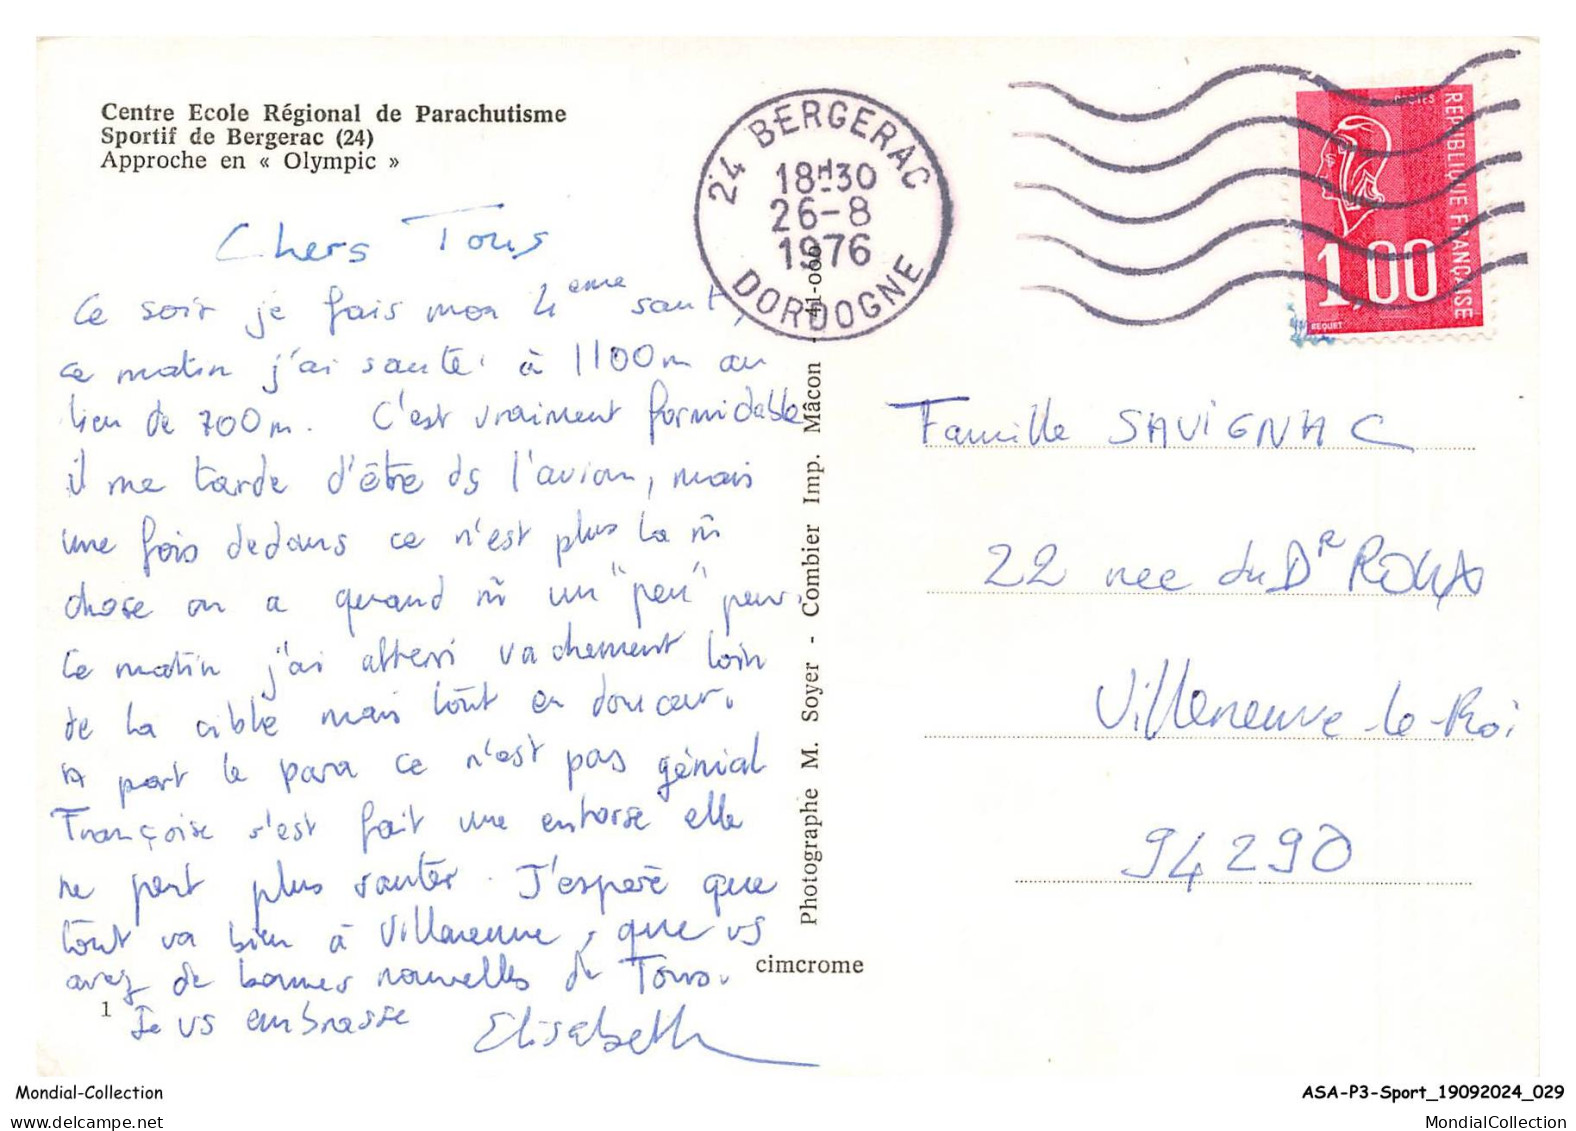 Centre Ecole Régional de Parachutisme
Sportif de Bergerac (24)
Approche en « Olympic »
Chers Tous
Ce soir je fais mon 4eme saut,
ce matin j'ai sauté à 1100m au
lieu de 700m. C'est vraiment formidable
il me tarde d'être ds l'avion, mais
une fois dedans ce n'est plus la m̃
chose on a quand m̃ un "peu" peur.
Ce matin j'ai atterri vachement loin
de la cible mais tout en douceur.
A part le para ce n'est pas génial
Françoise s'est fait une entorse elle
ne peut plus sauter. J'espère que
tout va bien à Villeneuve, que vs
avez de bonnes nouvelles de Tous.
Je vs embrasse Elisabeth
1
24 BERGERAC
18H30
26-8
1976
DORDOGNE
POSTES
REPUBLIQUE FRANÇAISE
1,00
BEQUET
Photographe M. Soyer - Combier Imp. Mâcon - 41-066
cimcrome
Famille SAVIGNAC
22 rue du Dr ROUX
Villeneuve-le-Roi
94290
Mondial-Collection
delcampe.net
ASA-P3-Sport_19092024_029
MondialCollection